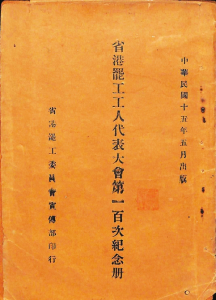 中華民國十五年五月出版
省港罷工工人代表大會第一百次紀念册
省港罷工委員會宣傳部印行